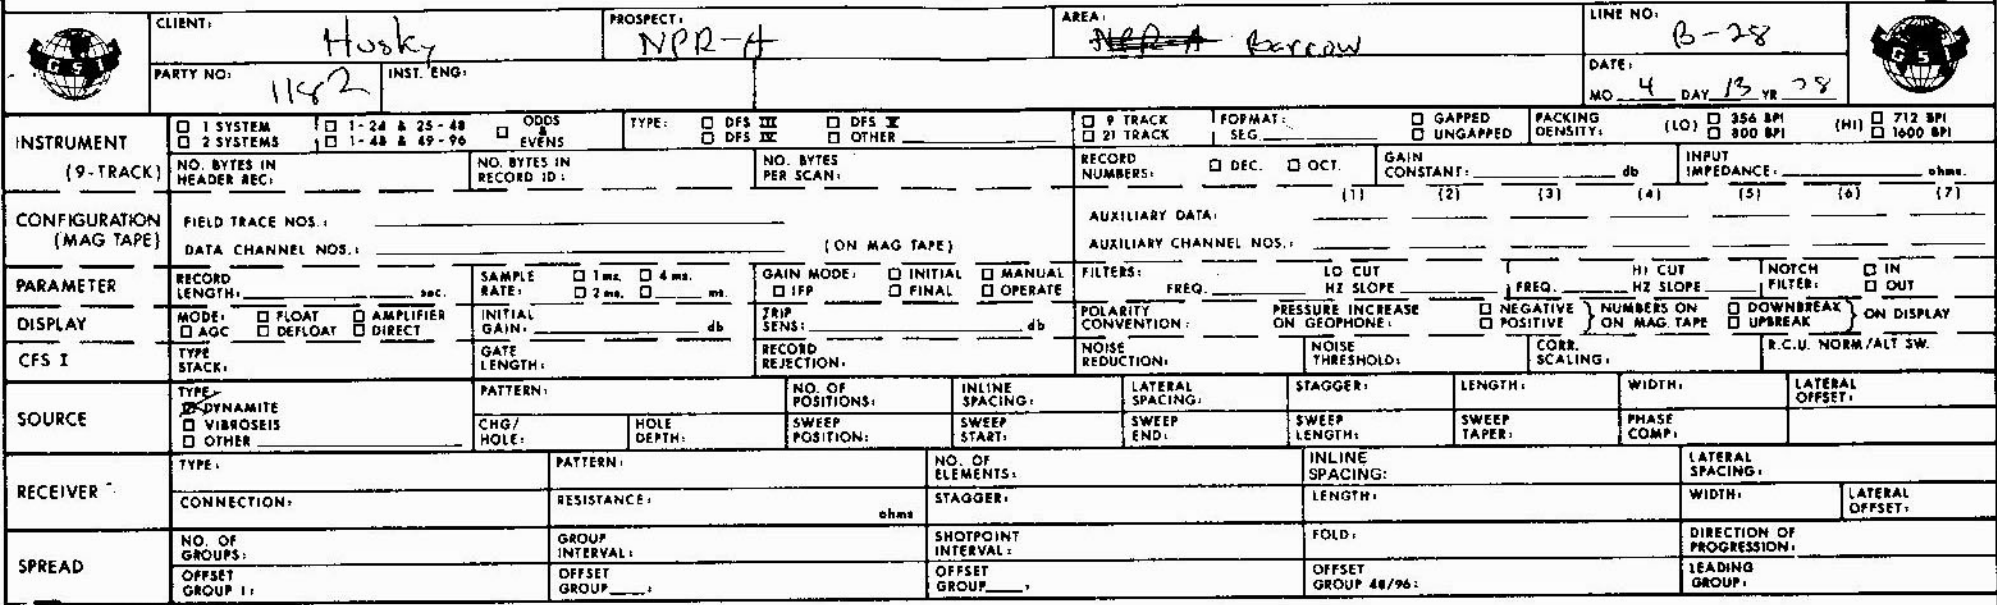 CLIENT: Husky PROSPECT: NPR-A AREA: NPR-A Barrow LINE NO: B-28
GSI GSI
PARTY NO: 1182 INST. ENG: DATE: MO 4 DAY 13 YR 78
INSTRUMENT □ 1 SYSTEM □ 1-24 & 25-48 □ ODDS & EVENS TYPE: □ DFS III □ DFS V □ 9 TRACK FORMAT: □ GAPPED PACKING DENSITY: (LO) □ 356 BPI (HI) □ 712 BPI
□ 2 SYSTEMS □ 1-48 & 49-96 □ DFS IV □ OTHER □ 21 TRACK SEG. □ UNGAPPED □ 800 BPI □ 1600 BPI
(9-TRACK) NO. BYTES IN HEADER REC: NO. BYTES IN RECORD ID: NO. BYTES PER SCAN: RECORD NUMBERS: □ DEC. □ OCT. GAIN CONSTANT: db INPUT IMPEDANCE: ohms.
(1) (2) (3) (4) (5) (6) (7)
CONFIGURATION FIELD TRACE NOS.: AUXILIARY DATA:
(MAG TAPE) DATA CHANNEL NOS.: (ON MAG TAPE) AUXILIARY CHANNEL NOS.:
PARAMETER RECORD LENGTH: sec. SAMPLE RATE: □ 1 ms. □ 4 ms. □ 2 ms. □ ms. GAIN MODE: □ INITIAL □ MANUAL □ IFP □ FINAL □ OPERATE FILTERS: FREQ. LO CUT HZ SLOPE FREQ. HI CUT HZ SLOPE NOTCH FILTER: □ IN □ OUT
DISPLAY MODE: □ FLOAT □ AMPLIFIER □ AGC □ DEFLOAT □ DIRECT INITIAL GAIN: db TRIP SENS: db POLARITY CONVENTION: PRESSURE INCREASE ON GEOPHONE: □ NEGATIVE □ POSITIVE } NUMBERS ON ON MAG. TAPE □ DOWNBREAK □ UPBREAK } ON DISPLAY
CFS I TYPE STACK: GATE LENGTH: RECORD REJECTION: NOISE REDUCTION: NOISE THRESHOLD: CORR. SCALING: R.C.U. NORM/ALT SW.
SOURCE TYPE: PATTERN: NO. OF POSITIONS: INLINE SPACING: LATERAL SPACING: STAGGER: LENGTH: WIDTH: LATERAL OFFSET:
☑ DYNAMITE
□ VIBROSEIS
□ OTHER CHG/HOLE: HOLE DEPTH: SWEEP POSITION: SWEEP START: SWEEP END: SWEEP LENGTH: SWEEP TAPER: PHASE COMP:
RECEIVER TYPE: PATTERN: NO. OF ELEMENTS: INLINE SPACING: LATERAL SPACING:
CONNECTION: RESISTANCE: ohms STAGGER: LENGTH: WIDTH: LATERAL OFFSET:
SPREAD NO. OF GROUPS: GROUP INTERVAL: SHOTPOINT INTERVAL: FOLD: DIRECTION OF PROGRESSION:
OFFSET GROUP 1: OFFSET GROUP : OFFSET GROUP , OFFSET GROUP 48/96: LEADING GROUP: